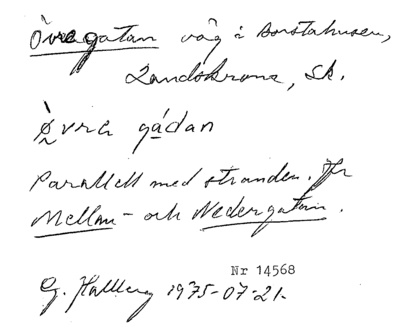 Övregatan väg i Borstahusen,
Landskrona, Sk.
øvrə gádan
Parallell med stranden. Jfr
Mellan- och Nedergatan.
Nr 14568
G. Hallberg 1975-07-21.